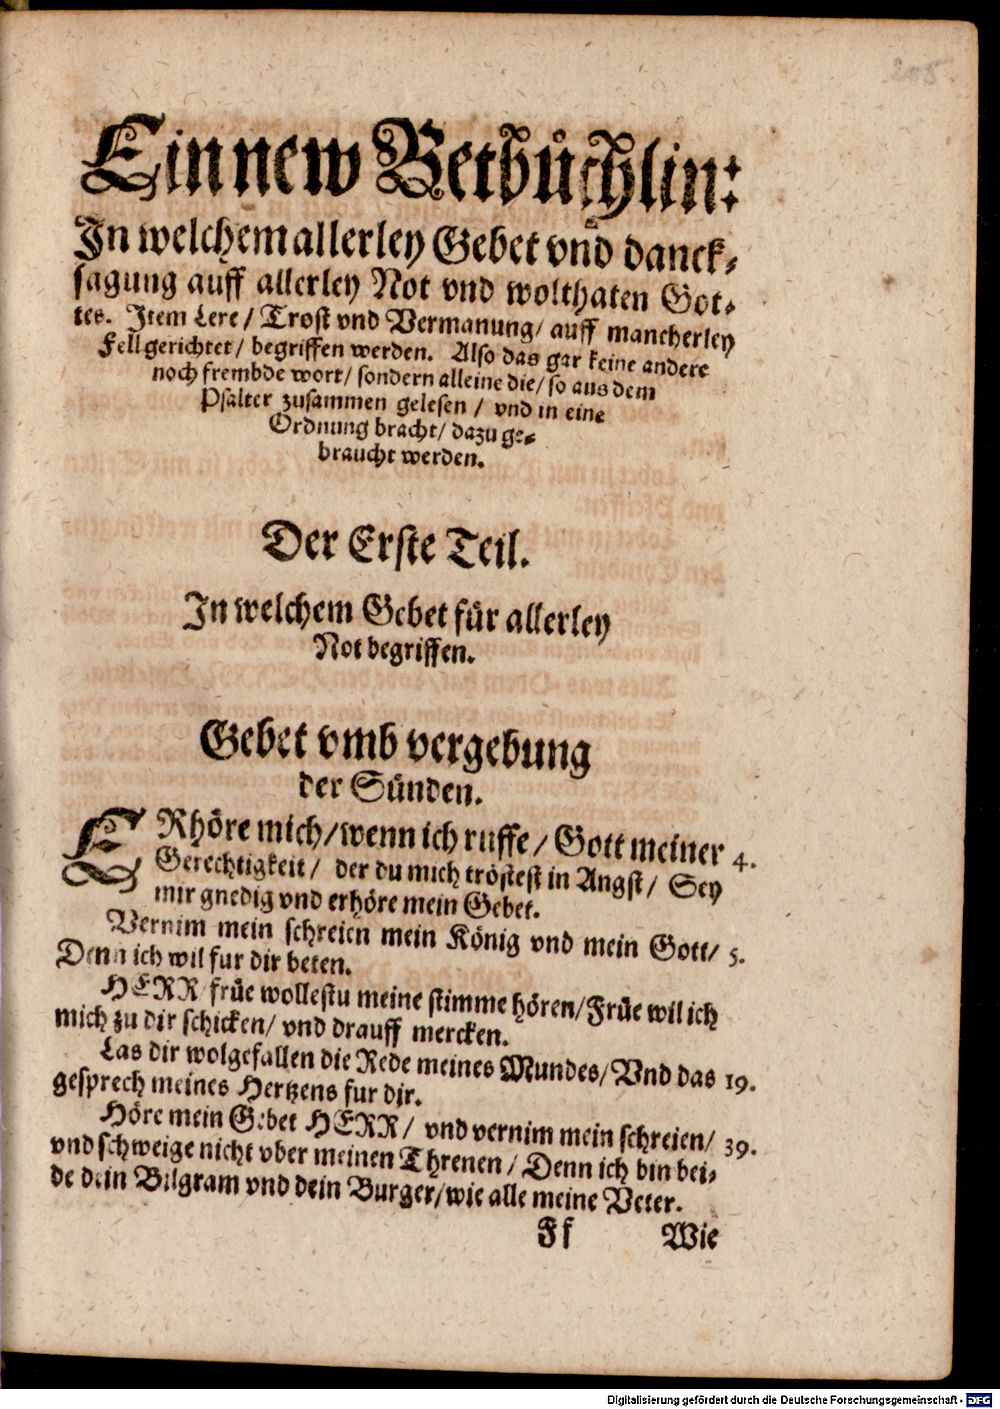 Ein new Betbüchlin:
In welchem allerley Gebet vnd danck⸗
sagung auff allerley Not vnd wolthaten Got⸗
tes. Item Lere / Trost vnd Vermanung / auff mancherley
Fell gerichtet / begriffen werden. Also das gar keine andere
noch frembde wort / sondern alleine die / so aus dem
Psalter zusammen gelesen / vnd in eine
Ordnung bracht / dazu ge⸗
braucht werden.
Der Erste Teil.
In welchem Gebet für allerley
Not begriffen.
Gebet vmb vergebung
der Sünden.
ERhöre mich / wenn ich ruffe / Gott meiner 4.
Gerechtigkeit / der du mich tröstest in Angst / Sey
mir gnedig vnd erhöre mein Gebet.
Vernim mein schreien mein König vnd mein Gott / 5.
Denn ich wil fur dir beten.
HERR früe wollestu meine stimme hören / Früe wil ich
mich zu dir schicken / vnd drauff mercken.
Las dir wolgefallen die Rede meines Mundes / Vnd das 19.
gesprech meines Hertzens fur dir.
Höre mein Gebet HERR / vnd vernim mein schreien / 39.
vnd schweige nicht vber meinen Threnen / Denn ich bin bei⸗
de dein Bilgram vnd dein Burger / wie alle meine Veter.
Ff Wie
Digitalisierung gefördert durch die Deutsche Forschungsgemeinschaft - DFG